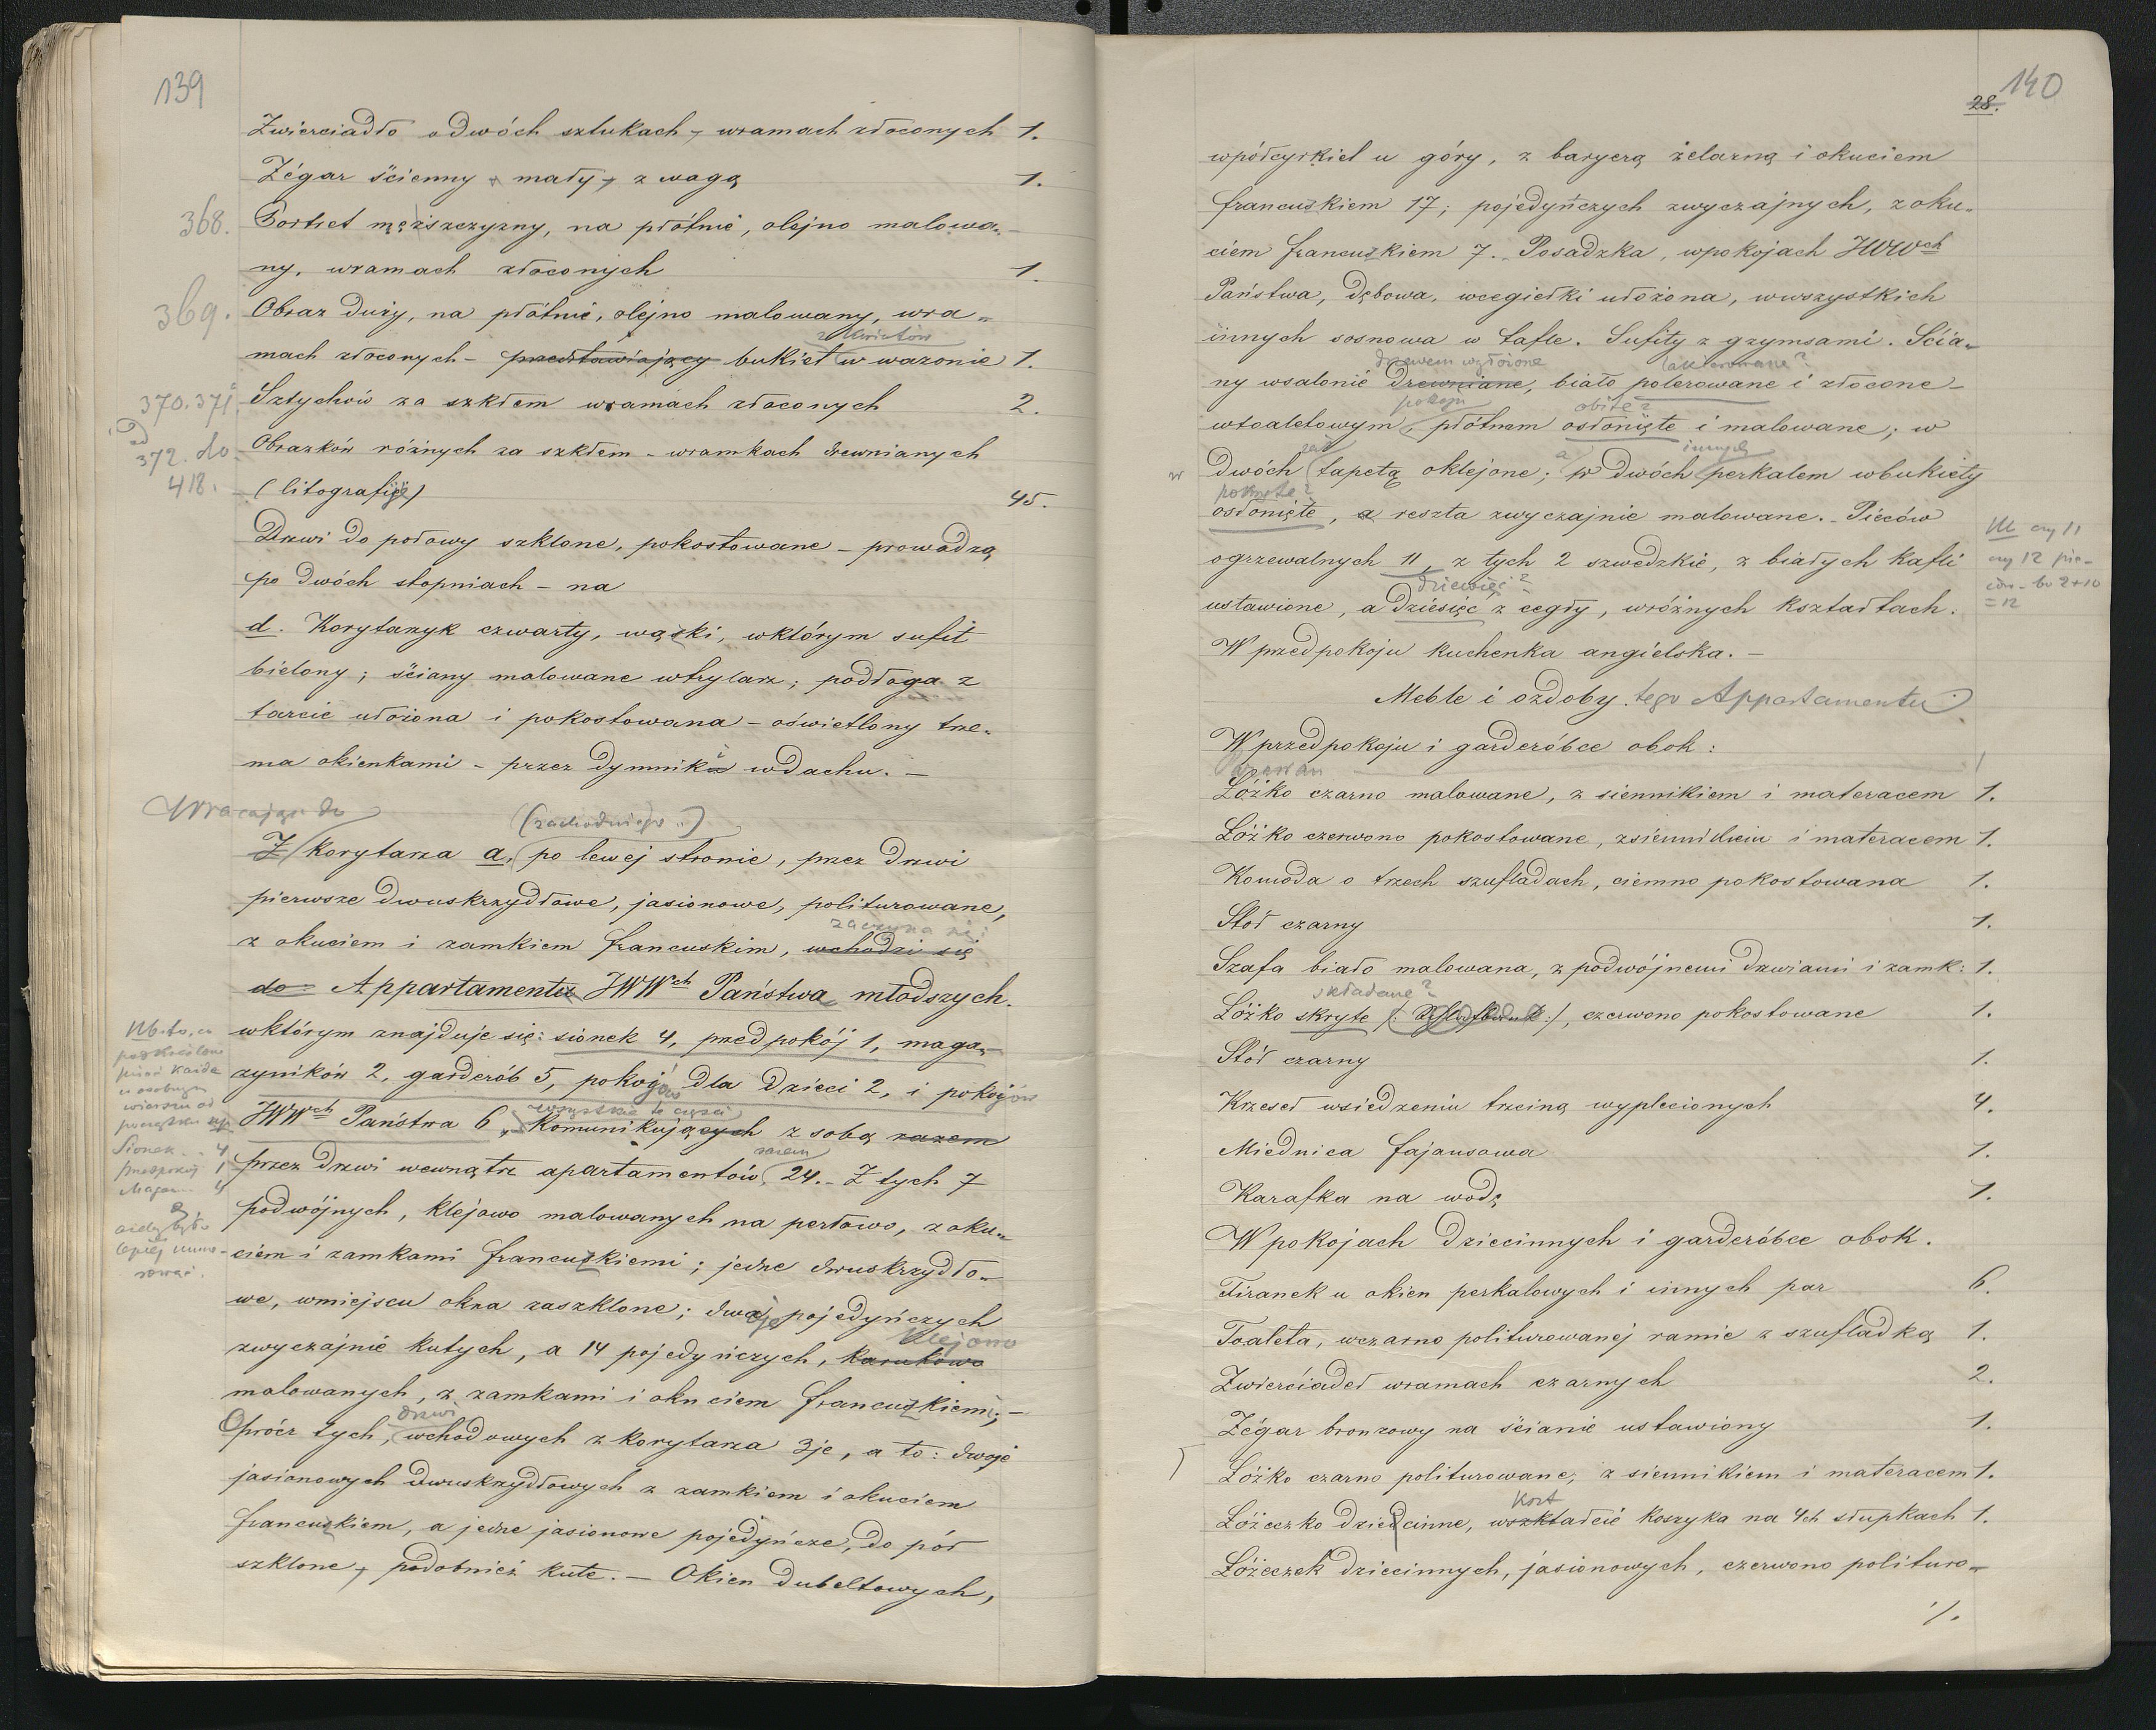 139
Zwierciadło o dwóch sztukach, wramach złoconych 1.
Zégar ścienny mały, z wagą 1.
368. Portret męższczyzny, na płótnie, olejno malowa-
ny, wramach złoconych 1.
369. Obraz duży, na płótnie, olejno malowany, wra-
z kwiatów
mach złoconych - przedstawiający bukiet w wazonie 1.
370. 371. Sztychów za szkłem wramach złoconych 2.
od 372. do 418. Obrazków różnych za szkłem - wramkach drewnianych
(litografije) 45.
Drzwi do połowy szklone, pokostowane - prowadzą
po dwóch stopniach - na
d. Korytarzyk czwarty, wązki, wktórym sufit
bielony; ściany malowane wtrylarz; podłoga z
tarcic ułożona i pokostowana - oświetlony trze-
ma okienkami - przez dymniki wdachu. -
Wracając do (zachodniego ..)
Z korytarza a. po lewej stronie, przez drzwi
pierwsze dwuskrzydłowe, jasionowe, politurowane,
zaczyna się:
z okuciem i zamkiem francuskim, wchodzi się
do Appartamentu JWWch Państwa młodszych.
wktórym znajduje się: sionek 4, przedpokój 1, maga-
zyników 2, garderób 5, pokojów dla dzieci 2, i pokojów
wszystkie te części
JWWch Państwa 6, Komunikujących z sobą razem
razem
przez drzwi wewnątrz apartamentów, 24. - Z tych 7
podwójnych, klejowo malowanych na perłowo, z oku-
ciem i zamkami francuzkiemi; jedne dwuskrzydło-
we, wmiejscu okna zaszklone; dwoje pojedyńczych
klejowo
zwyczajnie kutych, a 14 pojedyńczych, karukowo
malowanych, z zamkami i okuciem francuzkiem; -
drzwi
Oprócz tych, wchodowych z korytarza 3je, a to: dwoje
jasionowych dwuskrzydłowych z zamkiem i okuciem
francuzkiem, a jedne jasionowe pojedyńcze, do pół
szklone, podobnież kute. - Okien dubeltowych,
Nb. to, co
podkreślone
pisać każde
w osobnym
wierszu od
początku
Sionek .. 4
przedpokój 1
Magaz..
lepiej numerować.
140
28.
wpółcyrkiel u góry, z baryerą żelazną i okuciem
francuzkiem 17; pojedyńczych zwyczajnych, z oku-
ciem francuzkiem 7. Posadzka, wpokojach JWWch
Państwa, dębowa, wcegiełki ułożona, wwszystkich
innych sosnowa w tafle. Sufity z gzymsami. Ścia-
drzewem wyłożone lakierowane?
ny wsalonie drewniane, biało polerowane i złocone -
pokoju obite?
wtoaletowym, płótnem osłonięte i malowane; w
zaś a innych
dwóch tapetą oklejone; w dwóch perkalem wbukiety
pokryte?
osłonięte, a reszta zwyczajnie malowane. - Pieców
ogrzewalnych 11, z tych 2 szwedzkie, z białych kafli
dziewięć?
ustawione, a dziesięć z cegły, wróżnych kształtach.
NB czy 11
czy 12 pie-
ców - bo 2+10
=12
W przedpokoju kuchenka angielska. -
Meble i ozdoby tego Appartamentu.
W przedpokoju i garderóbce obok:
Łóżko czarno malowane, z siennikiem i materacem 1.
Łóżko czerwono pokostowane, zsiennikiem i materacem 1.
Komoda o trzech szufladach, ciemno pokostowana 1.
Stół czarny 1.
Szafa biało malowana, z podwójnemi drzwiami i zamk: 1.
składane?
Łóżko skryte /: :/, czerwono pokostowane 1.
Stół czarny 1.
Krzeseł wsiedzeniu trzciną wyplecionych 4.
Miednica fajansowa 1.
Karafka na wodę 1.
W pokojach dziecinnych i garderóbce obok.
Firanek u okien perkalowych i innych par 6.
Toaleta, wczarno politurowanej ramie z szufladką 1.
Zwierciadeł wramach czarnych 2.
Zégar bronzowy na ścianie ustawiony 1.
Łóżko czarno politurowane, z siennikiem i materacem 1.
kszt
Łóżeczko dziecinne, wszktałcie koszyka na 4ch słupkach 1.
Łóżeczek dziecinnych, jasionowych, czerwono polituro-
./.